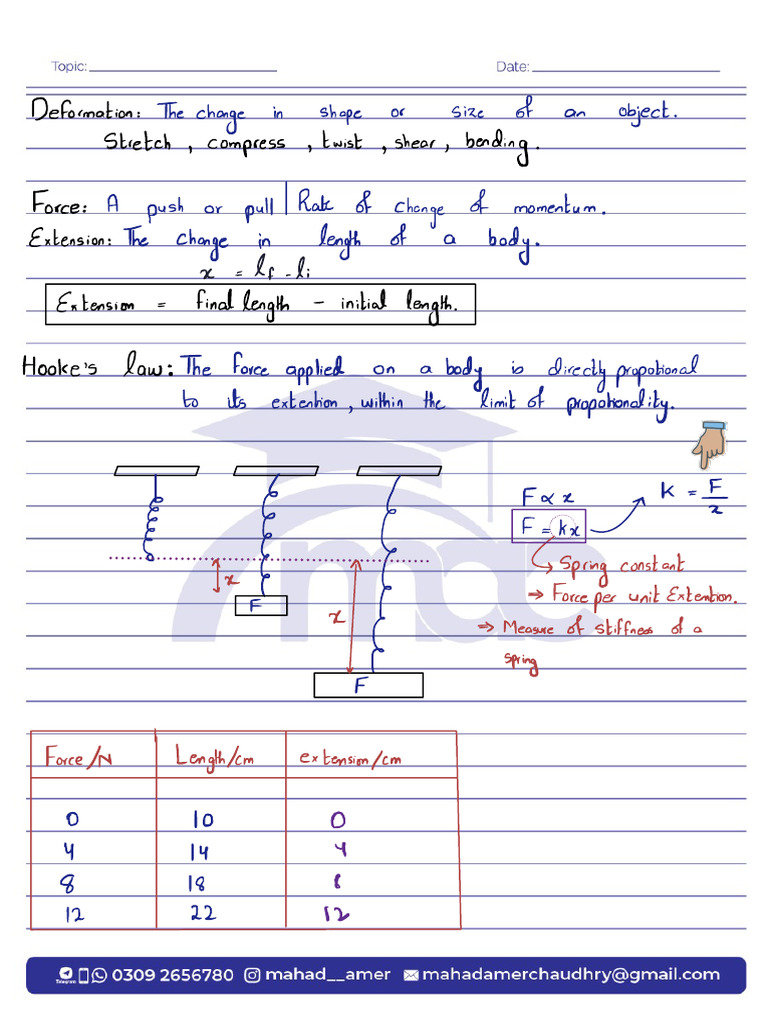 Topic: Date:
Deformation: The change in shape or size of an object.
Stretch, compress, twist, shear, bending.
Force: A push or pull | Rate of change of momentum.
Extension: The change in length of a body.
x = lf - li
Extension = final length - initial length.
Hooke's law: The force applied on a body is directly propotional
to its extention, within the limit of propotionality.
F ∝ x
k = F/x
F = kx
Spring constant
⇒ Force per unit Extention.
⇒ Measure of stiffness of a
spring
x
F
x
F
mac
Force/N Length/cm extension/cm
0 10 0
4 14 4
8 18 8
12 22 12
Telegram 0309 2656780 mahad__amer mahadamerchaudhry@gmail.com